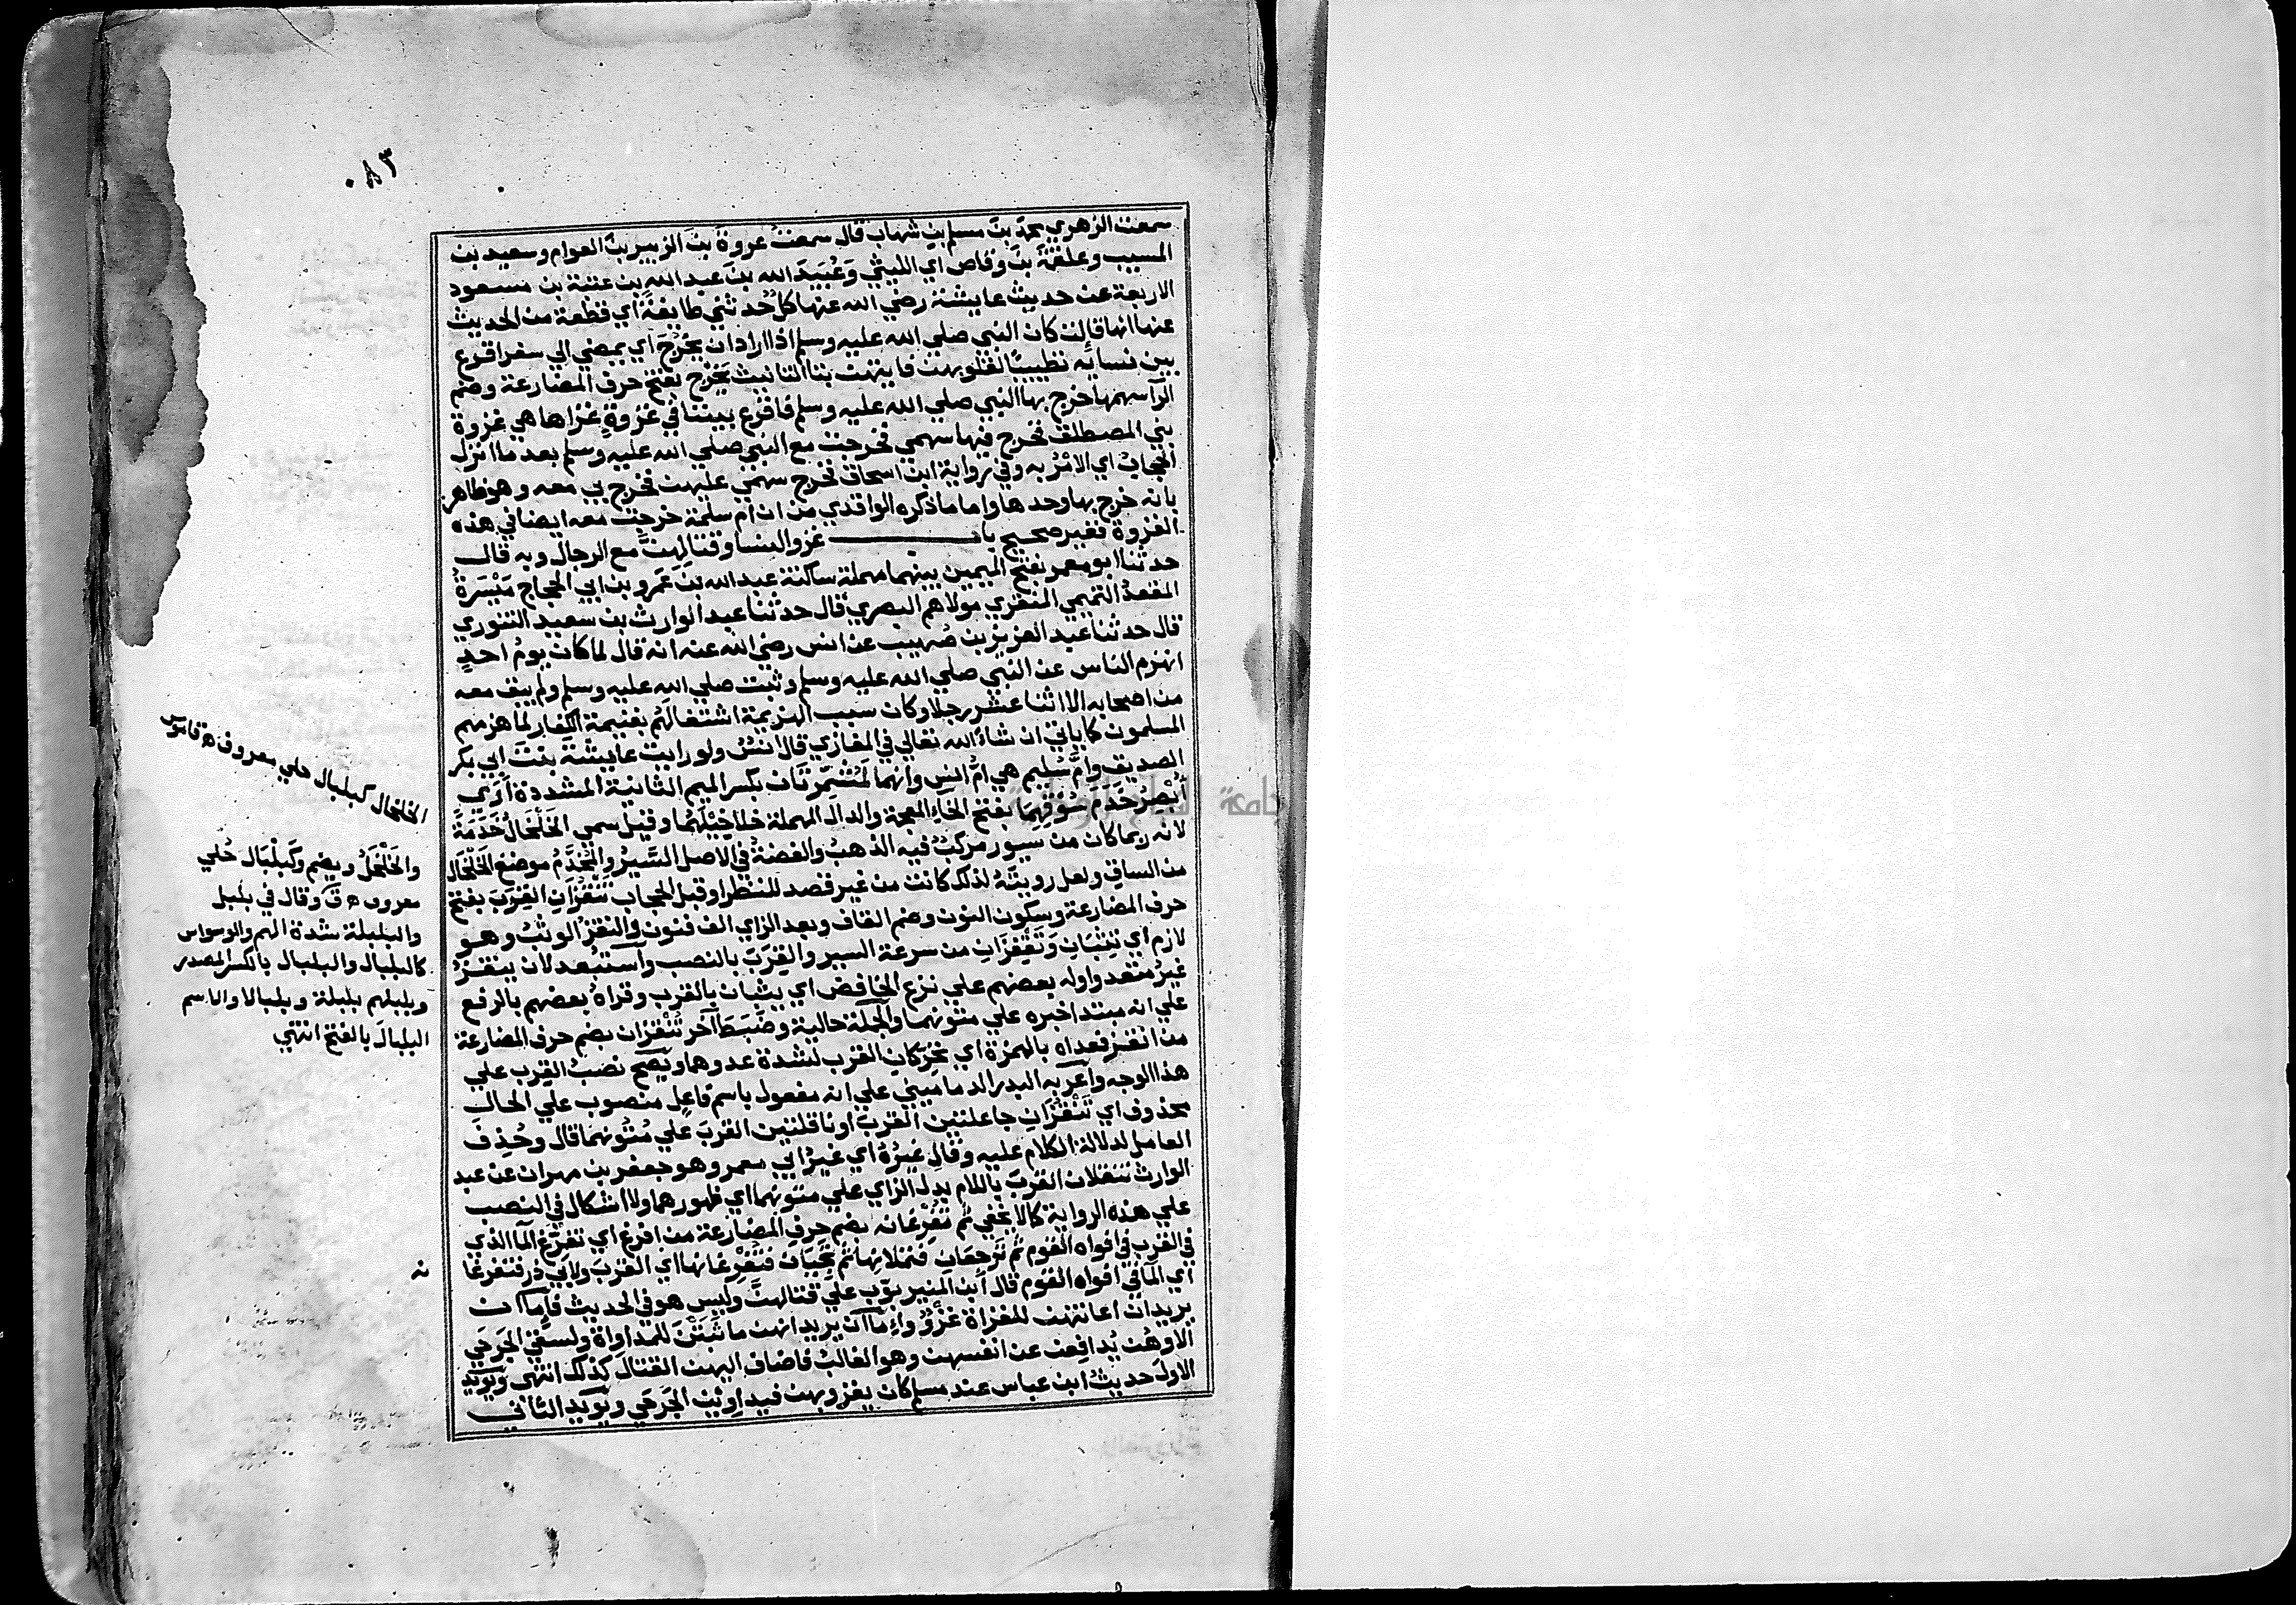 ٠٨٣
سمعت الزهري محمد بن مسلم بن شهاب قال سمعت عروة بن الزبير بن العوام وسعيد بن
المسيب وعلقمة بن وقاص اي الليثي وعبيد الله بن عبد الله بن عتبة بن مسعود
الاربعة عن حديث عايشة رضي الله عنها كل حدثني طايفة اي قطعة من الحديث
عنها انها قالت كان النبي صلي الله عليه وسلم اذا اراد ان يخرج اي يمضي الي سفر اقرع
بين نسايه تطييبا لقلوبهن فايتهن بتا التانيث يخرج بفتح حرف المضارعة وضم
الرآ سهمها خرج بها النبي صلي الله عليه وسلم فاقرع بيننا في غزوة غزاها هي غزوة
بني المصطلق فخرج فيها سهمي فخرجت مع النبي صلي الله عليه وسلم بعد ما انزل
الحجاب اي الامر به وفي رواية ابن اسحاق فخرج سهمي عليهن فخرج بي معه وهو ظاهر
بانه خرج بها وحدها واما ما ذكره الواقدي من ان ام سلمة خرجت معه ايضا في هذه
الغزوة فغير صحيح باب غزو النسا وقتالهن مع الرجال وبه قال
حدثنا ابو معمر بفتح الميمين بينهما مهملة ساكنة عبد الله بن عمرو بن ابي الحجاج ميسرة
المقعد التميمي المنقري مولاهم البصري قال حدثنا عبد الوارث بن سعيد التنوري
قال حدثنا عبد العزيز بن صهيب عن انس رضي الله عنه انه قال لما كان يوم احد
انهزم الناس عن النبي صلي الله عليه وسلم وثبت صلي الله عليه وسلم ولم يبق معه
من اصحابه الا اثنا عشر رجلا وكان سبب الهزيمة اشتغالهم بغنيمة الكفار لما هزمهم
المسلمون كما ياتي ان شاء الله تعالي في المغازي قال انس ولو رايت عايشة بنت ابي بكر
الصديق وام سليم هي ام انس وانهما لمشمرتان بكسر الميم الثانية المشددة اري
ابصر خدم سوقهما بفتح الخاء المعجمة والدال المهملة خلاخيلهما وقيل سمي الخلخال خدمة
لانه ربما كان من سيور مركب فيه الذهب والفضة في الاصل السير والمخدم موضع الخلخال
من الساق ولعل رويته لذلك كانت من غير قصد للنظر او قبل الحجاب تنقزان القرب بفتح
حرف المضارعة وسكون النون وضم القاف وبعد الزاي الف فنون والنقز الوثب وهو
لازم اي تثبان وتقفزان من سرعة السير والقرب بالنصب واستبعد لان ينقز
غير متعد واوله بعضهم علي نزع الخافض اي يثبان بالقرب وقراه بعضهم بالرفع
علي انه مبتدا خبره علي متونهما والجملة حالية وضبط آخر تنقزان بضم حرف المضارعة
من انقز فعداه بالهمزة اي تحركان القرب لشدة عدوهما ويصح نصب القرب علي
هذا الوجه واعربه البدر الدماميني علي انه مفعول باسم فاعل منصوب علي الحال
محذوف اي تنقزان جاعلتين القرب او ناقلتين القرب علي متونهما قال وحذف
العامل لدلالة الكلام عليه وقال غيره اي غير ابي معمر وهو جعفر بن مهران عن عبد
الوارث تنقلان القرب باللام بدل الزاي علي متونهما اي ظهورهما ولا اشكال في النصب
علي هذه الرواية كما لا يخفي ثم تفرغانه بضم حرف المضارعة من افرغ اي تفرغ المآ الذي
في القرب في افواه القوم ثم ترجعان فتملانها ثم تجيئان فتفرغانها اي القرب ولابي ذر فتفرغا
اي المآ في افواه القوم قال ابن المنير بوب علي قتالهن وليس هو في الحديث فاما ان
يريد ان اعانتهن للغزاة غزو واما ان يريد انهن ما ثبتن للمداواة ولسقي الجرحي
الا وهن يدافعن عن انفسهن وهو الغالب فاضاف اليهن القتال كذلك انتهي ويويد
الاول حديث ابن عباس عند مسلم كان يغزو بهن فيداوين الجرحي ويويد الثاني
الخلخال كبلبال حلي معروف ه قاموس
والخلخل ويضم وكبلبال حلي
معروف ه ق وقال في بلبل
والبلبلة شدة الهم والوسواس
كالبلبال والبلبال بالكسر المصدر
وبلبلهم بلبلة وبلبالا والاسم
البلبال بالفتح انتهي
نه